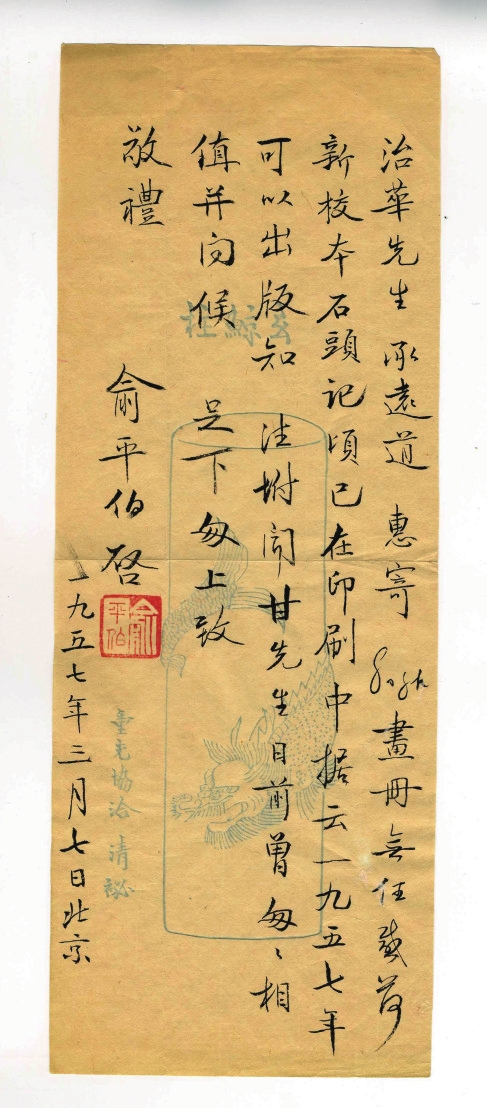 治華先生 承遠道 惠寄 畫冊 無任感荷
新校本石頭記頃已在印刷中据云一九五七年
可以出版知 注坿聞甘先生日前曾匆〻相
值并问候 足下匆上致
敬禮
俞平伯启
一九五七年三月七日北京
平伯
重光協洽 清祕